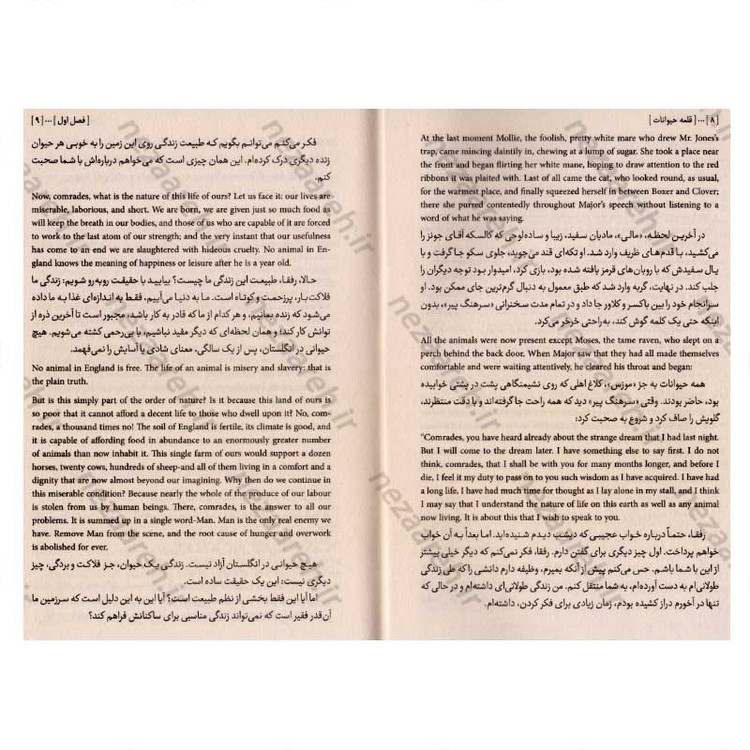 [ ۸ ] ... [ قلعه حیوانات ]
At the last moment Mollie, the foolish, pretty white mare who drew Mr. Jones's
trap, came mincing daintily in, chewing at a lump of sugar. She took a place near
the front and began flirting her white mane, hoping to draw attention to the red
ribbons it was plaited with. Last of all came the cat, who looked round, as usual,
for the warmest place, and finally squeezed herself in between Boxer and Clover;
there she purred contentedly throughout Major's speech without listening to a
word of what he was saying.
در آخرین لحظه، «مالی»، مادیان سفید، زیبا و ساده‌لوحی که کالسکه آقای جونز را
می‌کشید، با قدم‌های ظریف وارد شد. او تکه‌ای قند می‌جوید، جلوی سکو جا گرفت و با
یال سفیدش که با روبان‌های قرمز بافته شده بود، بازی کرد، امیدوار بود توجه دیگران را
جلب کند. در نهایت، گربه وارد شد که طبق معمول به دنبال گرم‌ترین جای ممکن بود. او
سرانجام خود را بین باکسر و کلاور جا داد و در تمام مدت سخنرانی «سرهنگ پیر»، بدون
اینکه حتی یک کلمه گوش کند، به‌راحتی خرخر می‌کرد.
All the animals were now present except Moses, the tame raven, who slept on a
perch behind the back door. When Major saw that they had all made themselves
comfortable and were waiting attentively, he cleared his throat and began:
همه حیوانات به جز «موزس»، کلاغ اهلی که روی نشیمنگاهی پشت در پشتی خوابیده
بود، حاضر بودند. وقتی «سرهنگ پیر» دید که همه راحت جا گرفته‌اند و با دقت منتظرند،
گلویش را صاف کرد و شروع به صحبت کرد:
"Comrades, you have heard already about the strange dream that I had last night.
But I will come to the dream later. I have something else to say first. I do not
think, comrades, that I shall be with you for many months longer, and before I
die, I feel it my duty to pass on to you such wisdom as I have acquired. I have had
a long life, I have had much time for thought as I lay alone in my stall, and I think
I may say that I understand the nature of life on this earth as well as any animal
now living. It is about this that I wish to speak to you.
رفقا، حتماً درباره خواب عجیبی که دیشب دیدم شنیده‌اید. اما بعداً به آن خواب
خواهم پرداخت. اول چیز دیگری برای گفتن دارم. رفقا، فکر نمی‌کنم که دیگر خیلی بیشتر
از این با شما باشم. حس می‌کنم پیش از آنکه بمیرم، وظیفه دارم دانشی را که طی زندگی
طولانی‌ام به دست آورده‌ام، به شما منتقل کنم. من زندگی طولانی‌ای داشته‌ام و در حالی که
تنها در آخورم دراز کشیده بودم، زمان زیادی برای فکر کردن، داشته‌ام.
[ فصل اول ] ... [ ۹ ]
فکر می‌کنم می‌توانم بگویم که طبیعت زندگی روی این زمین را به خوبی هر حیوان
زنده دیگری درک کرده‌ام. این همان چیزی است که می‌خواهم درباره‌اش با شما صحبت
کنم.
Now, comrades, what is the nature of this life of ours? Let us face it: our lives are
miserable, laborious, and short. We are born, we are given just so much food as
will keep the breath in our bodies, and those of us who are capable of it are forced
to work to the last atom of our strength; and the very instant that our usefulness
has come to an end we are slaughtered with hideous cruelty. No animal in En-
gland knows the meaning of happiness or leisure after he is a year old.
حالا، رفقا، طبیعت این زندگی ما چیست؟ بیایید با حقیقت روبه‌رو شویم: زندگی ما
فلاکت‌بار، پرزحمت و کوتاه است. ما به دنیا می‌آییم، فقط به اندازه‌ای غذا به ما داده
می‌شود که زنده بمانیم، و هر کدام از ما که قادر به کار باشد، مجبور است تا آخرین ذره از
توانش کار کند؛ و همان لحظه‌ای که دیگر مفید نباشیم، با بی‌رحمی کشته می‌شویم. هیچ
حیوانی در انگلستان، پس از یک سالگی، معنای شادی یا آسایش را نمی‌فهمد.
No animal in England is free. The life of an animal is misery and slavery: that is
the plain truth.
But is this simply part of the order of nature? Is it because this land of ours is
so poor that it cannot afford a decent life to those who dwell upon it? No, com-
rades, a thousand times no! The soil of England is fertile, its climate is good, and
it is capable of affording food in abundance to an enormously greater number
of animals than now inhabit it. This single farm of ours would support a dozen
horses, twenty cows, hundreds of sheep-and all of them living in a comfort and a
dignity that are now almost beyond our imagining. Why then do we continue in
this miserable condition? Because nearly the whole of the produce of our labour
is stolen from us by human beings. There, comrades, is the answer to all our
problems. It is summed up in a single word-Man. Man is the only real enemy we
have. Remove Man from the scene, and the root cause of hunger and overwork
is abolished for ever.
هیچ حیوانی در انگلستان آزاد نیست. زندگی یک حیوان، جز فلاکت و بردگی، چیز
دیگری نیست: این یک حقیقت ساده است.
اما آیا این فقط بخشی از نظم طبیعت است؟ آیا این به این دلیل است که سرزمین ما
آن‌قدر فقیر است که نمی‌تواند زندگی مناسبی برای ساکنانش فراهم کند؟